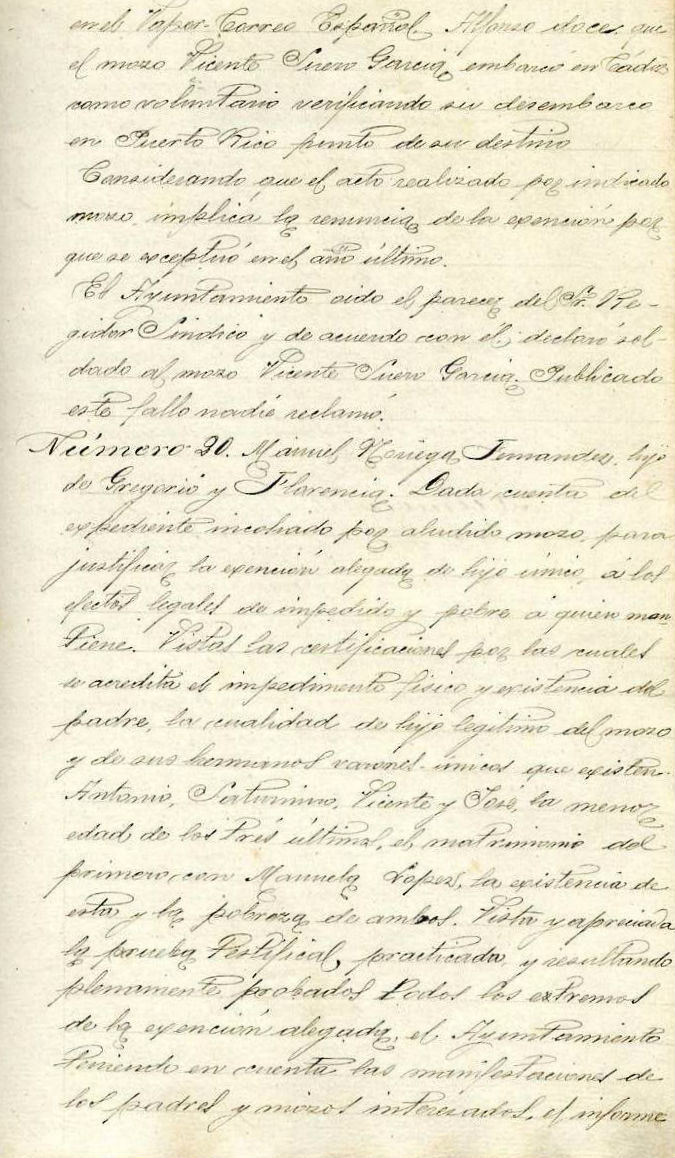 en el Vapor-Correo Español, Alfonso doce, que
el mozo Vicente Suero Garcia, embarcó en Cádiz
como voluntario verificando su desembarco
en Puerto Rico punto de su destino
Considerando que el acto realizado por indicado
mozo implica la renuncia de la exención por
que se exceptuó en el año último.
El Ayuntamiento oido el parecer del Sr. Re-
gidor Sindico y de acuerdo con el, declaró sol-
dado al mozo Vicente Suero Garcia. Publicado
este fallo nadie reclamó.
Número 20. Manuel Noriega Fernandez, hijo
de Gregorio y Florencia. Dada cuenta del
expediente incohado por aludido mozo, para
justificar la exención alegada de hijo único, á los
efectos legales de impedido y pobre á quien man-
tiene. Vistas las certificaciones por las cuales
se acredita el impedimento fisico y existencia del
padre, la cualidad de hijo legitimo del mozo
y de sus hermanos varones únicos que existen
Antonio, Saturnino, Vicente y José, la menor
edad de los trés últimos, el matrimonio del
primero con Manuela Lopez, la existencia de
esta y la pobreza de ambos. Vista y apreciada
la prueba testifical, practicada y resultando
plenamente probados todos los extremos
de la exención alegada, el Ayuntamiento
teniendo en cuenta las manifestaciones de
los padres y mozos interesados, el informe